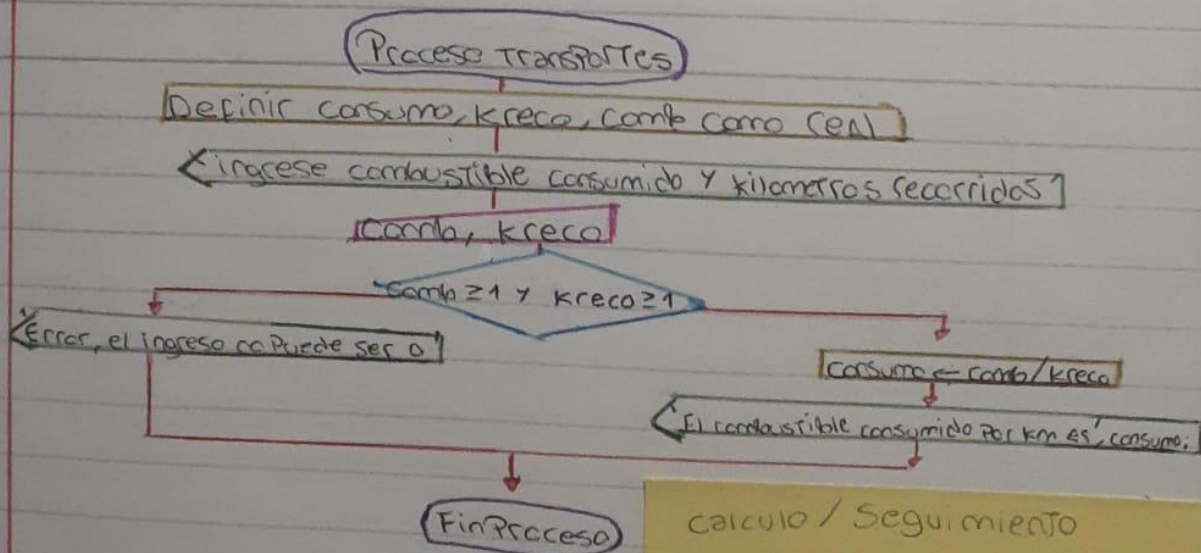 Proceso Transportes
Definir consumo, kreco, comb como real
'ingrese combustible consumido y kilometros recorridos'
comb, kreco
comb ≥ 1 y kreco ≥ 1
'Error, el ingreso no puede ser 0'
consumo ← comb/kreco
'El combustible consumido por km es', consumo;
FinProceso
calculo / Seguimiento